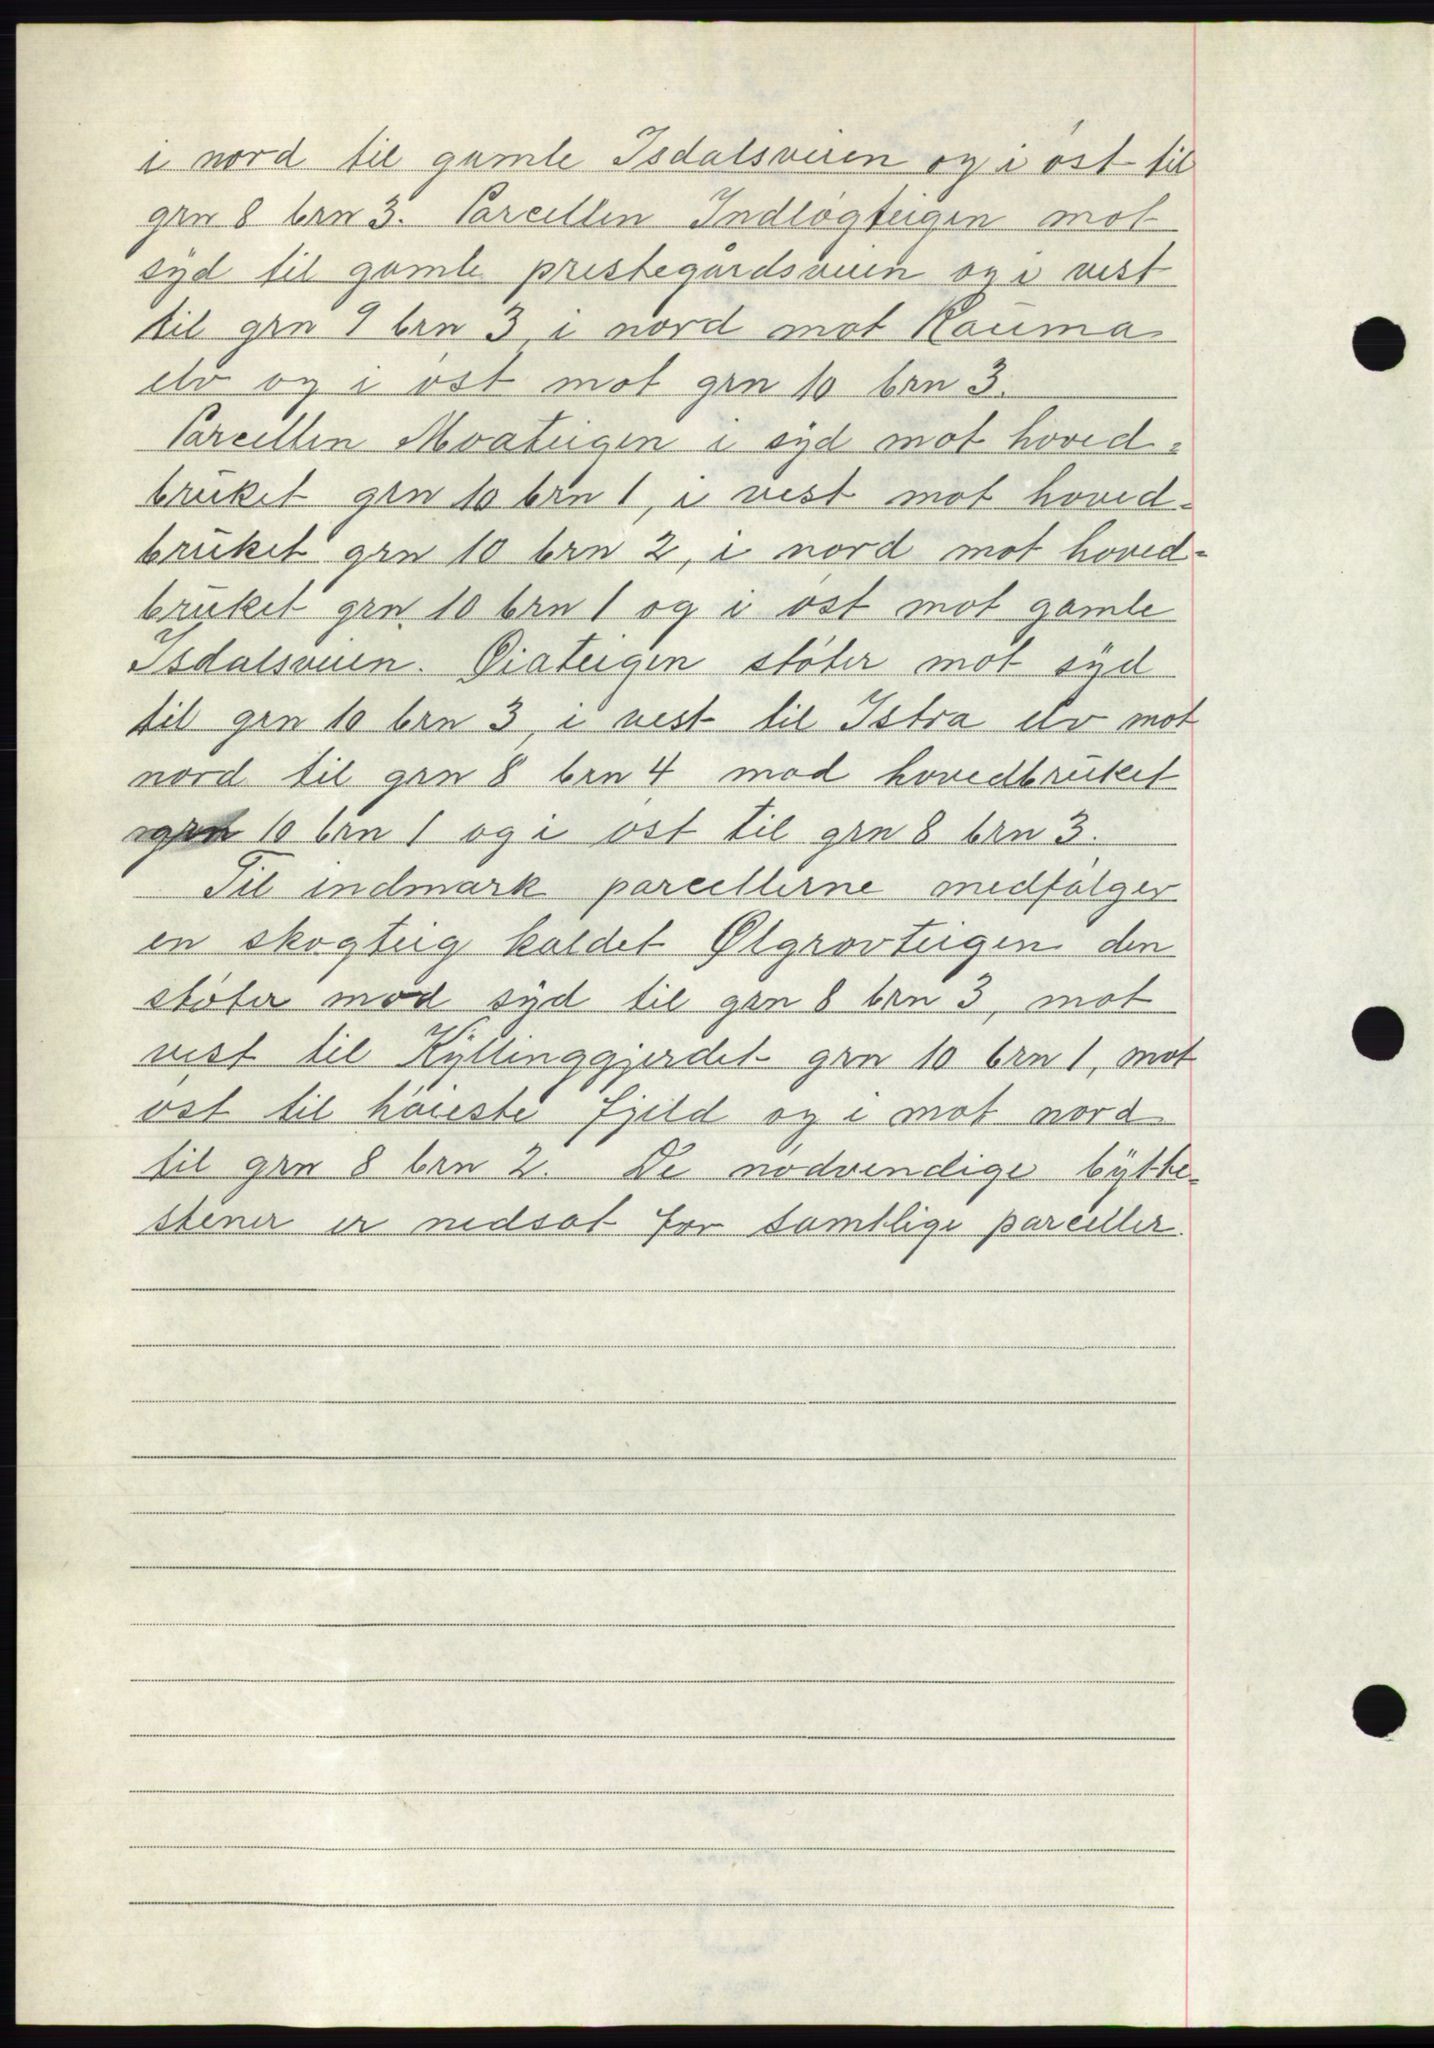 i nord til gamle Isdalsveien og i øst til
grn 8 brn 3. Parcellen Indløgteigen mot
syd til gamle prestegårdsveien og i vest
til grn 9 brn 3, i nord mot Rauma
elv og i øst mot grn 10 brn 3.
Parcellen Moateigen i syd mot hoved=
bruket grn 10 brn 1, i vest mot hoved-
bruket grn 10 brn 2, i nord mot hoved=
bruket grn 10 brn 1 og i øst mot gamle
Isdalsveien. Øiateigen støter mot syd
til grn 10 brn 3, i vest til Istra elv mot
nord til grn 8 brn 4 mod hovedbruket
grn 10 brn 1 og i øst til grn 8 brn 3.
Til indmark parcellerne medfølger
en skogteig kaldet Ølgrovteigen den
støter mod syd til grn 8 brn 3, mot
vest til Kyllinggjerdet grn 10 brn 1, mot
øst til høieste fjeld og i mot nord
til grn 8 brn 2. De nødvendige bytte=
stener er nedsat for samtlige parceller.